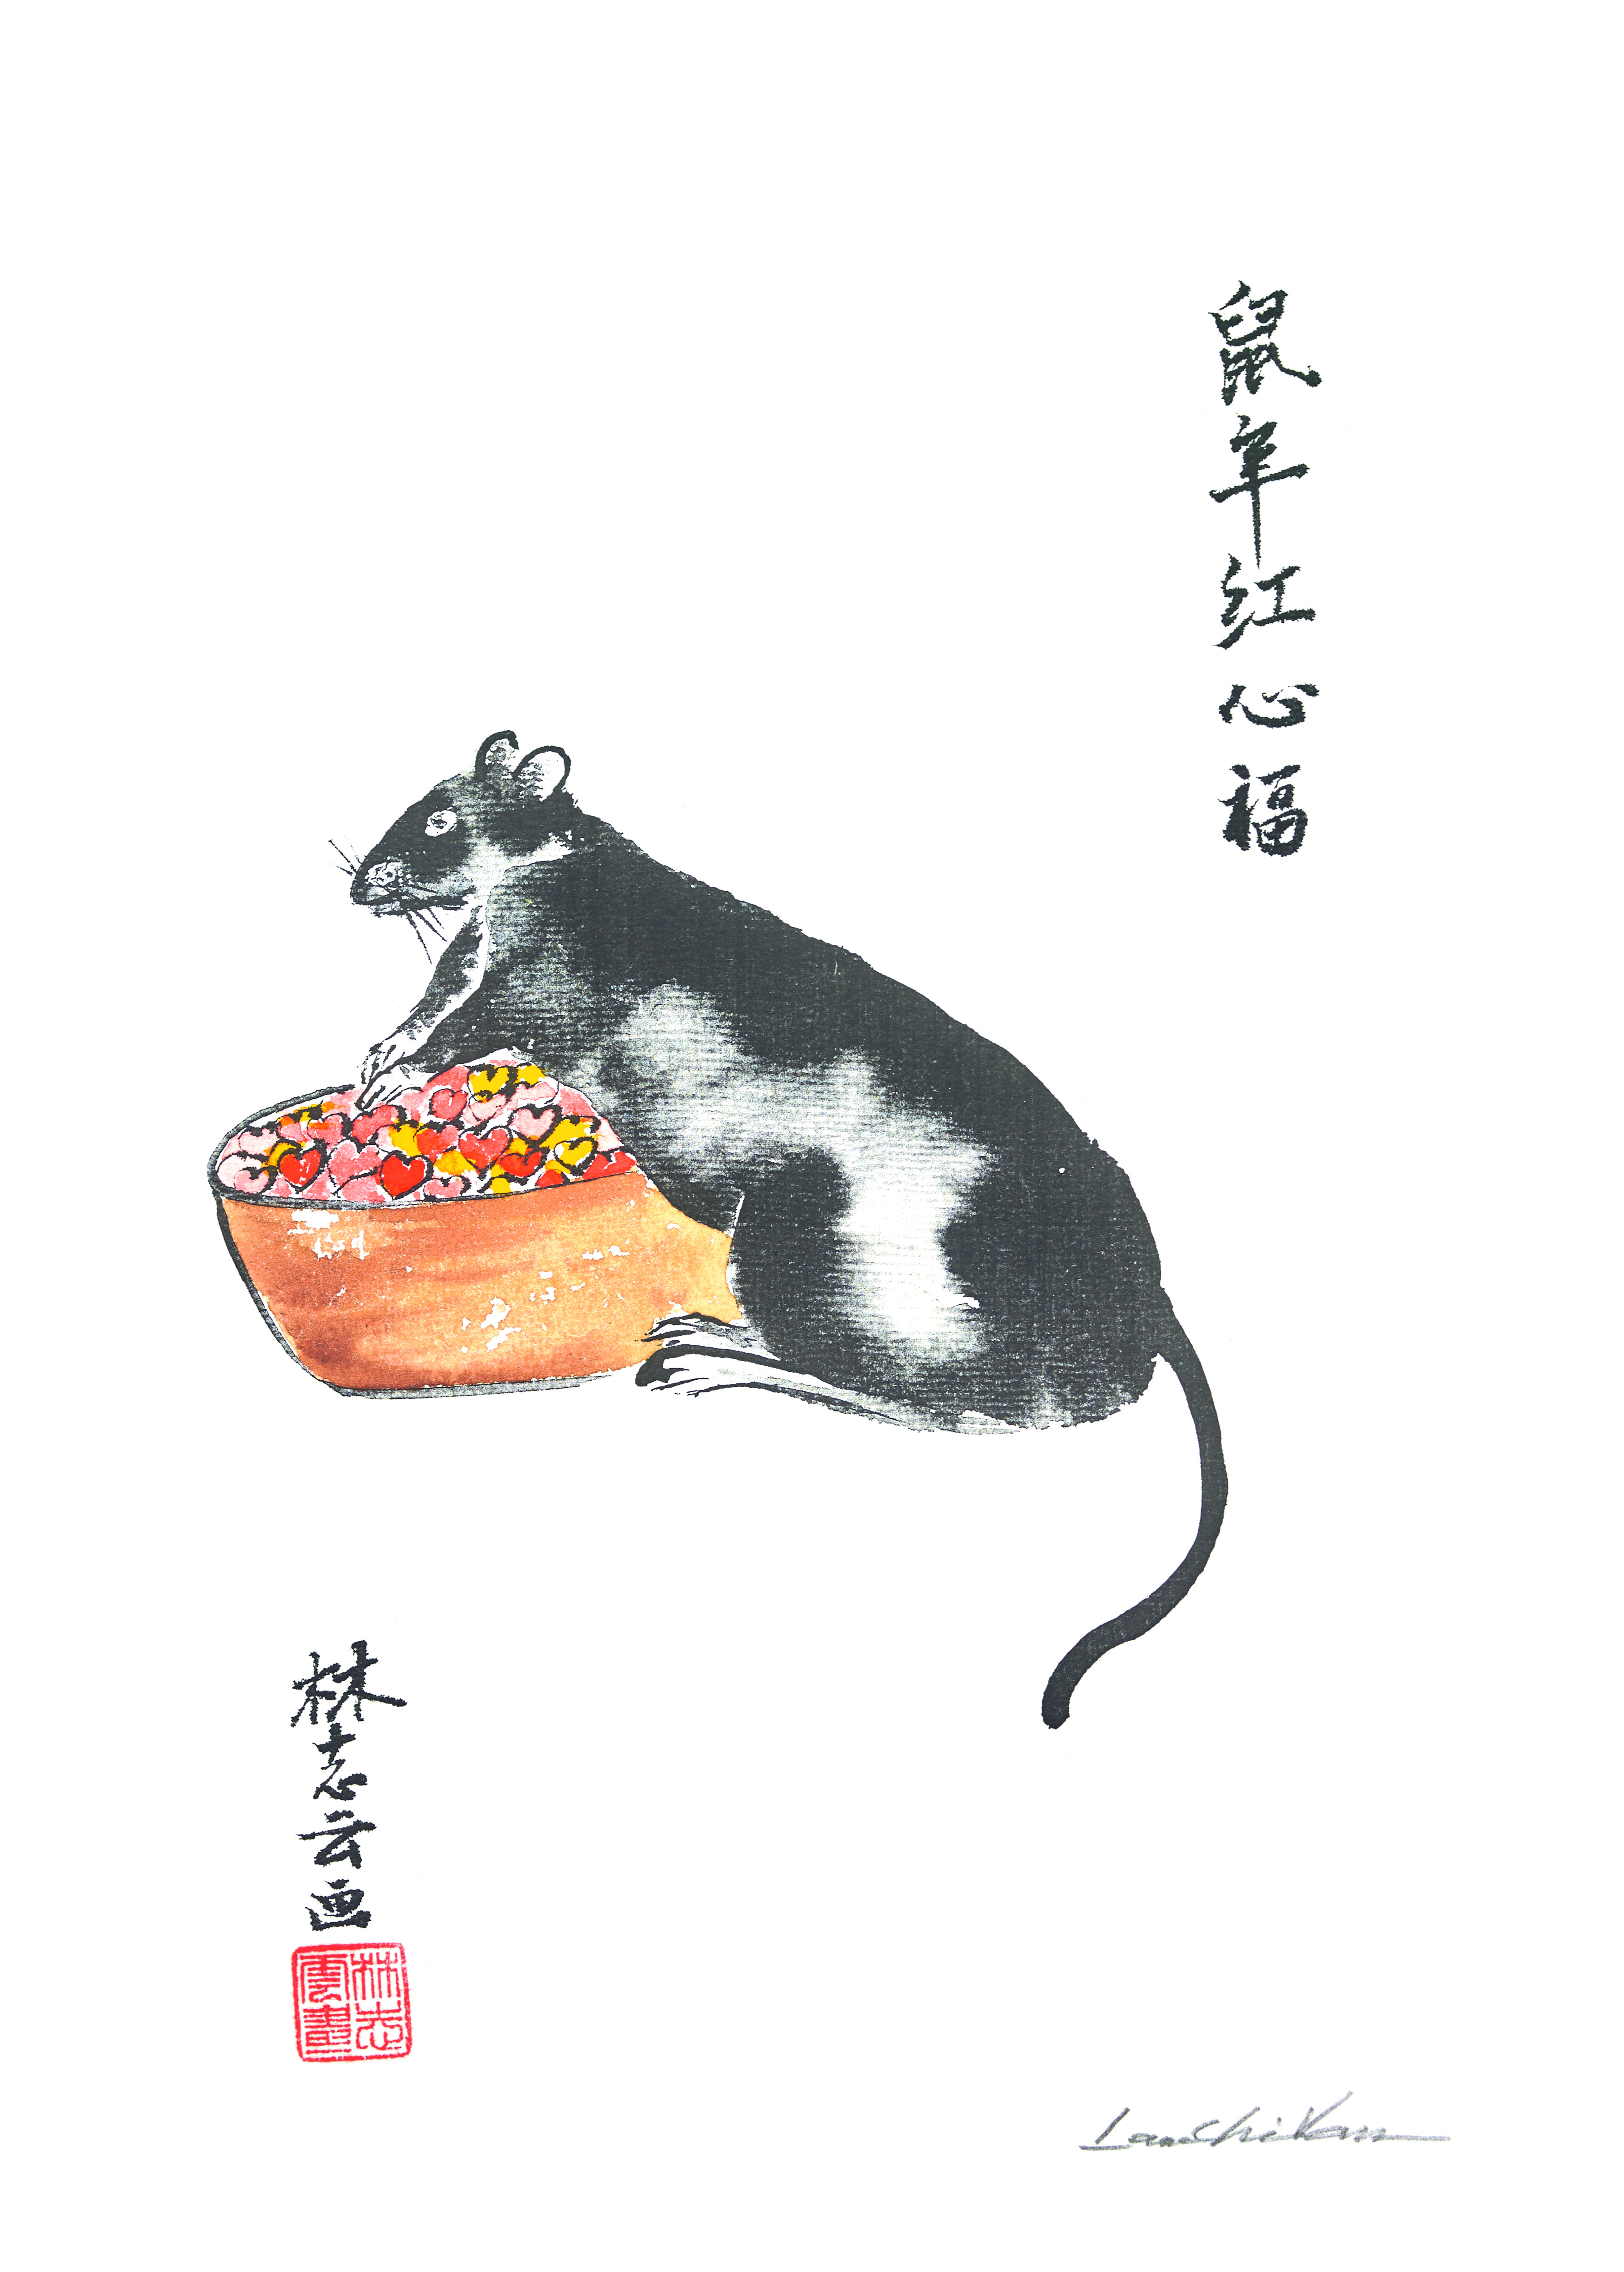 鼠年红心福
林志云画
林志
雲畫